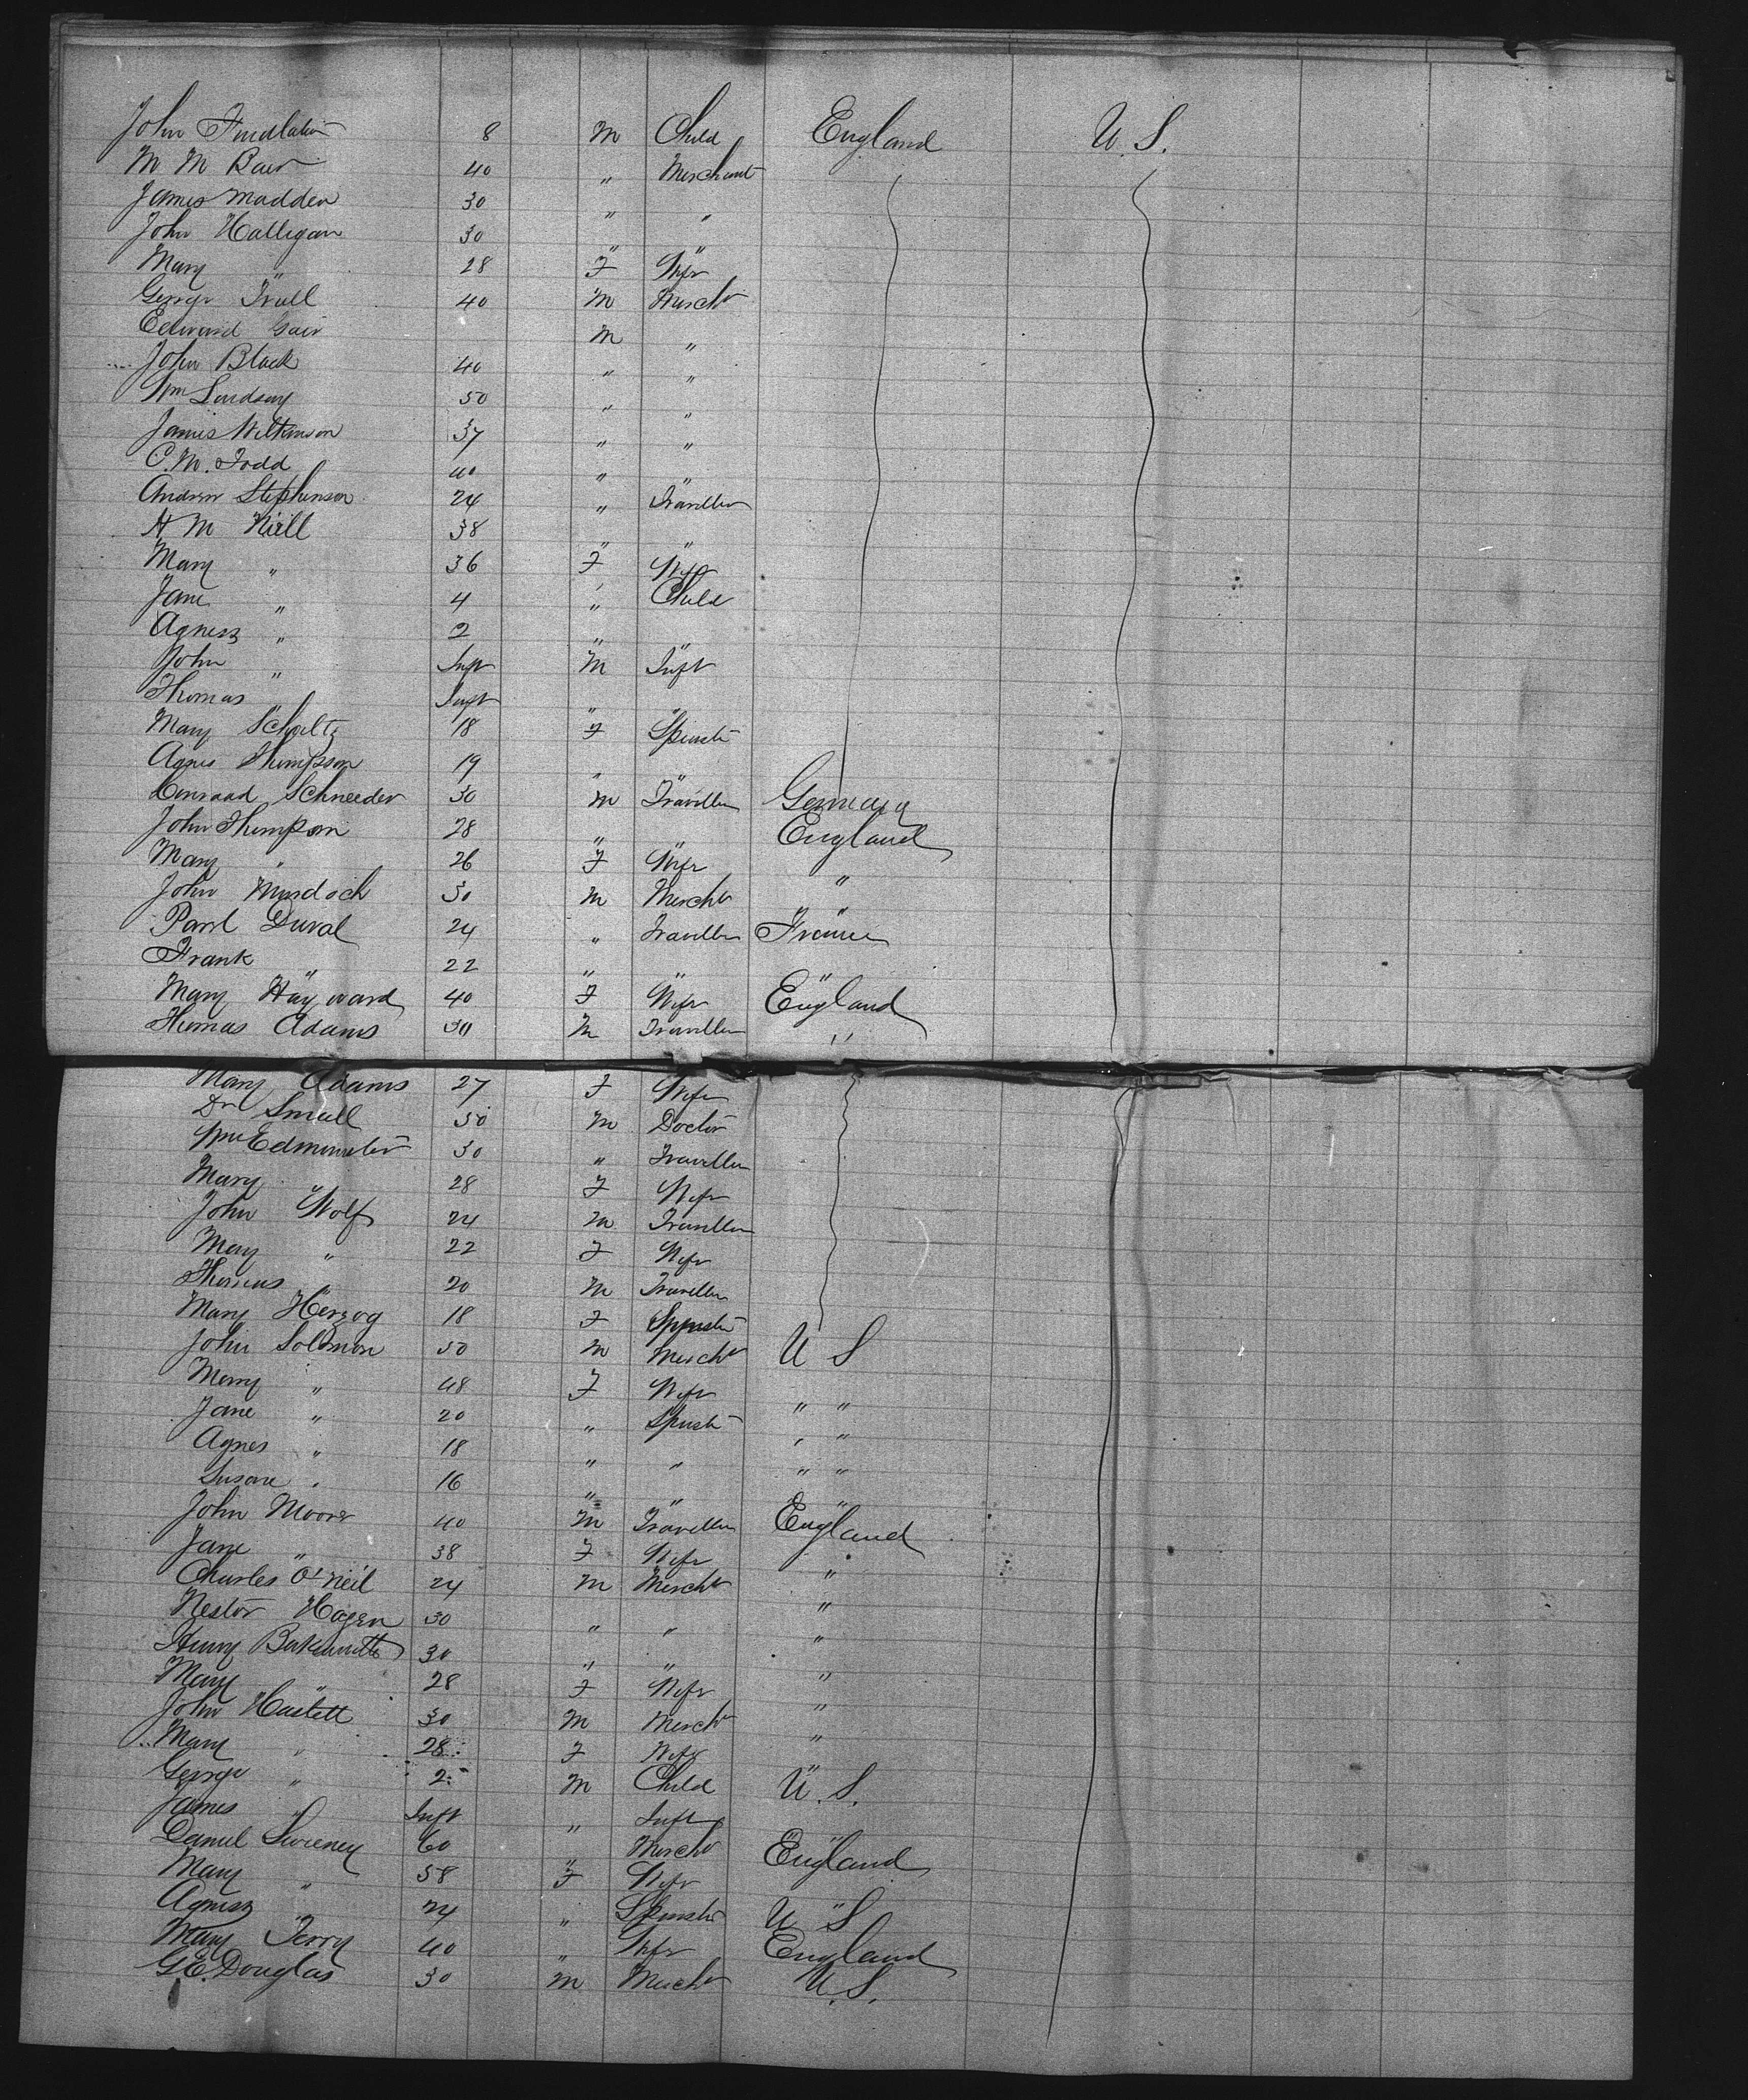 John 8 M Child England U. S.
M M 40 " Merchant
James Madden 30 " "
John Halligan 30 " "
Mary " 28 F Wife
George Trull 40 M Mercht
Edward Gair M "
John Black 40 " "
Wm Lindsay 50 " "
James Wilkinson 37 " "
C. M. Todd 40 " "
Andrew Stephenson 24 " Traveller
H M Neill 38 " "
Mary " 36 F Wife
Jane " 4 " Child
Agness " 2 " "
John " Inft M Inft
Thomas " Inft " "
Mary Schultz 18 F Spinstr
Agnes Thompson 19 " "
Conraad Schneeder 30 M Traveller Germany
John Thompson 28 " " England
Mary " 26 F Wife "
John Murdoch 30 M Mercht "
Paul Duval 24 " Traveller France
Frank " 22 " " "
Mary Hayward 40 F Wife England
Thomas Adams 30 M Traveller "
Mary Adams 27 F Wife
Dr Small 50 M Doctor
Wm 30 " Traveller
Mary " 28 F Wife
John Wolf 24 M Traveller
May " 22 F Wife
Thomas " 20 M Traveller
Mary Herzog 18 F Spinstr
John Solomon 50 M Mercht U S
Mary " 48 F Wife " "
Jane " 20 " Spinstr " "
Agnes " 18 " " " "
Susane " 16 " " " "
John Moore 40 M Traveller England
Jane " 38 F Wife "
Charles O'Neil 24 M Mercht "
Nestor Hagen 30 " " "
Henry 30 " " "
Mary " 28 F Wife "
John Haslett 30 M Mercht "
Mary " 28 F Wife "
George " 2 M Child U. S.
James " Inft " Inft "
Daniel Sweeney 60 " Mercht England
Mary " 58 F Wife "
Agness " 24 " Spinstr U S
Mary Terry 40 " Wife England
G. E. Douglas 30 M Mercht U. S.